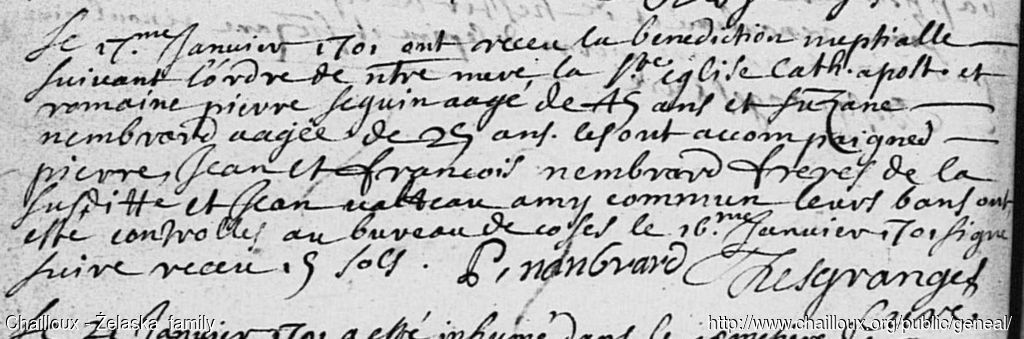 Le 17.me Janvier 1701 ont receu la benediction nuptialle
suivant l'ordre de ntre mere la Ste église Cath. apost. et
romaine pierre seguin aagé de 45 ans et suzane
nembrard aagée de 25 ans. les ont accompaignes
pierre, Jean et francois nembrard freres de la
susditte et Jean valteau amy commun leurs bans ont
esté controlles au bureau de coses le 16.me Janvier 1701 signe
suire receu 15 sols. P. nanbrard Desgranges
Curé.
Le 21 Janvier 1701 a esté inhumé dans le
Chailloux - Żelaska family
http://www.chailloux.org/public/geneal/